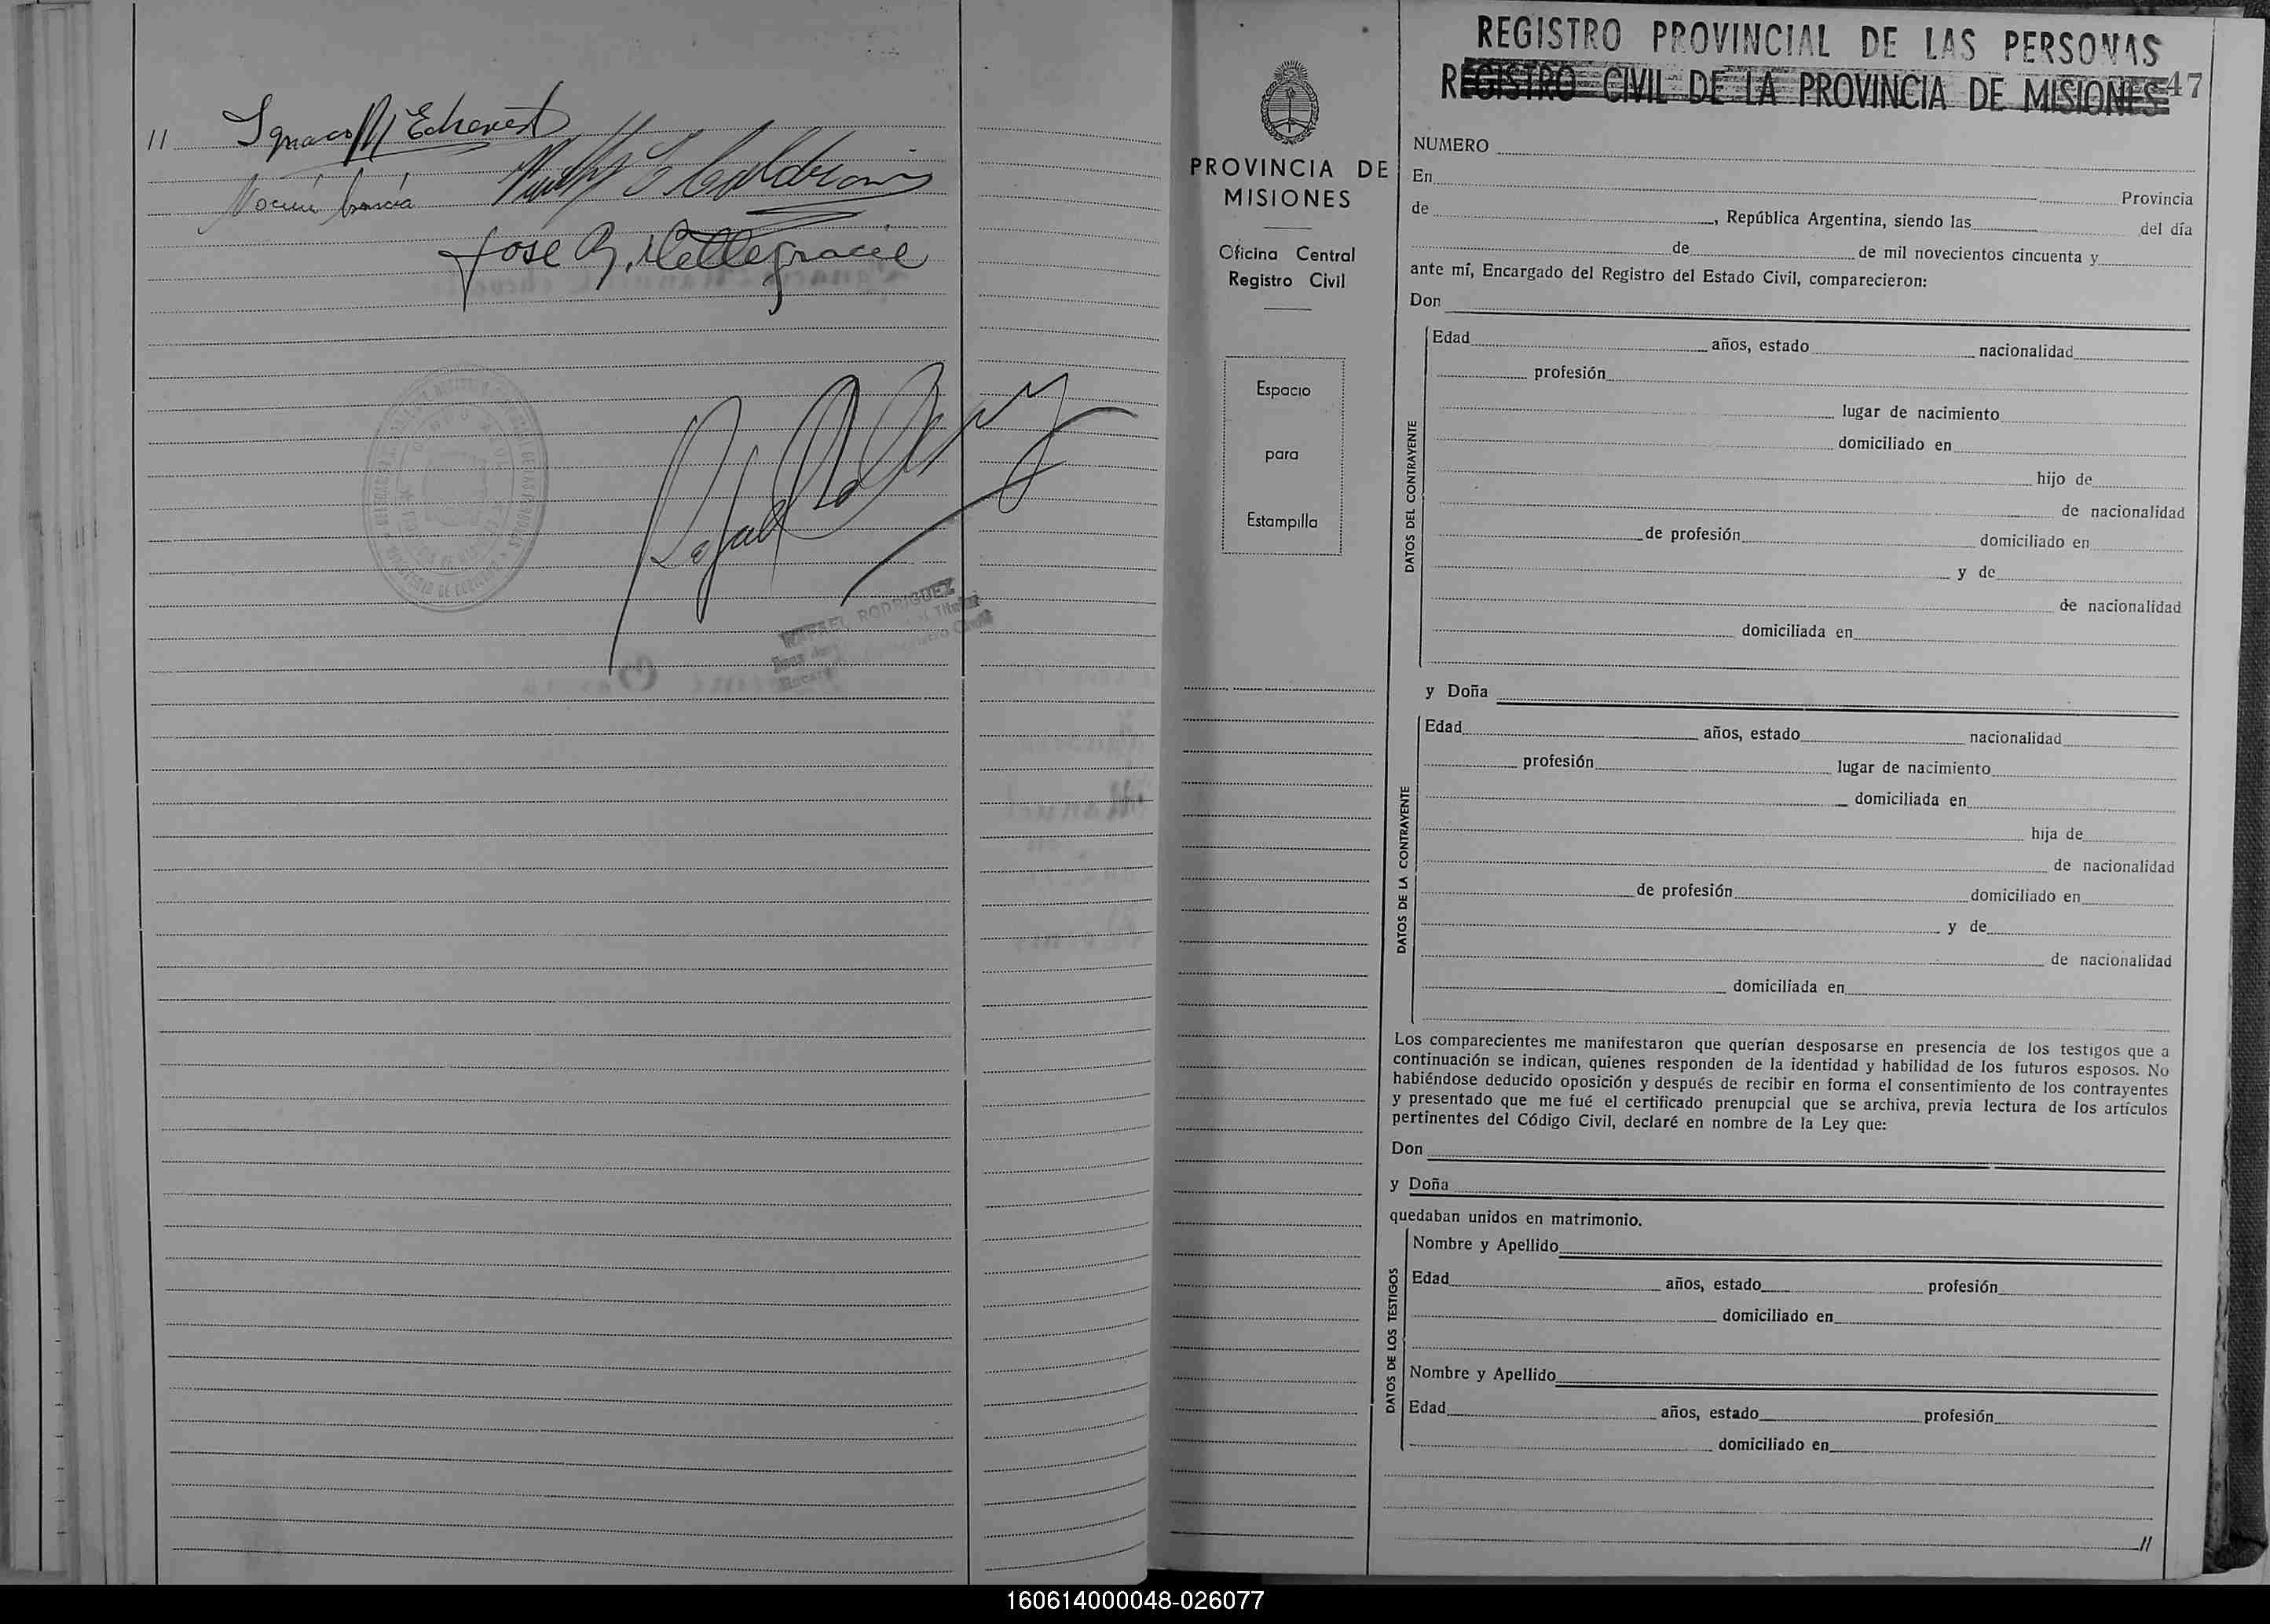 // Ignacio M Echeverri
Noemi García
Jose R. Dellegracie
RAFAEL RODRIGUEZ
PROVINCIA DE
MISIONES
Oficina Central
Registro Civil
Espacio
para
Estampilla
REGISTRO PROVINCIAL DE LAS PERSONAS
REGISTRO CIVIL DE LA PROVINCIA DE MISIONES 47
NUMERO
En Provincia
de , República Argentina, siendo las del día
de de mil novecientos cincuenta y
ante mí, Encargado del Registro del Estado Civil, comparecieron:
Don
DATOS DEL CONTRAYENTE
Edad años, estado nacionalidad
profesión
lugar de nacimiento
domiciliado en
hijo de
de nacionalidad
de profesión domiciliado en
y de
de nacionalidad
domiciliada en
y Doña
DATOS DE LA CONTRAYENTE
Edad años, estado nacionalidad
profesión lugar de nacimiento
domiciliada en
hija de
de nacionalidad
de profesión domiciliado en
y de
de nacionalidad
domiciliada en
Los comparecientes me manifestaron que querían desposarse en presencia de los testigos que a
continuación se indican, quienes responden de la identidad y habilidad de los futuros esposos. No
habiéndose deducido oposición y después de recibir en forma el consentimiento de los contrayentes
y presentado que me fué el certificado prenupcial que se archiva, previa lectura de los artículos
pertinentes del Código Civil, declaré en nombre de la Ley que:
Don
y Doña
quedaban unidos en matrimonio.
DATOS DE LOS TESTIGOS
Nombre y Apellido
Edad años, estado profesión
domiciliado en
Nombre y Apellido
Edad años, estado profesión
domiciliado en
//
160614000048-026077